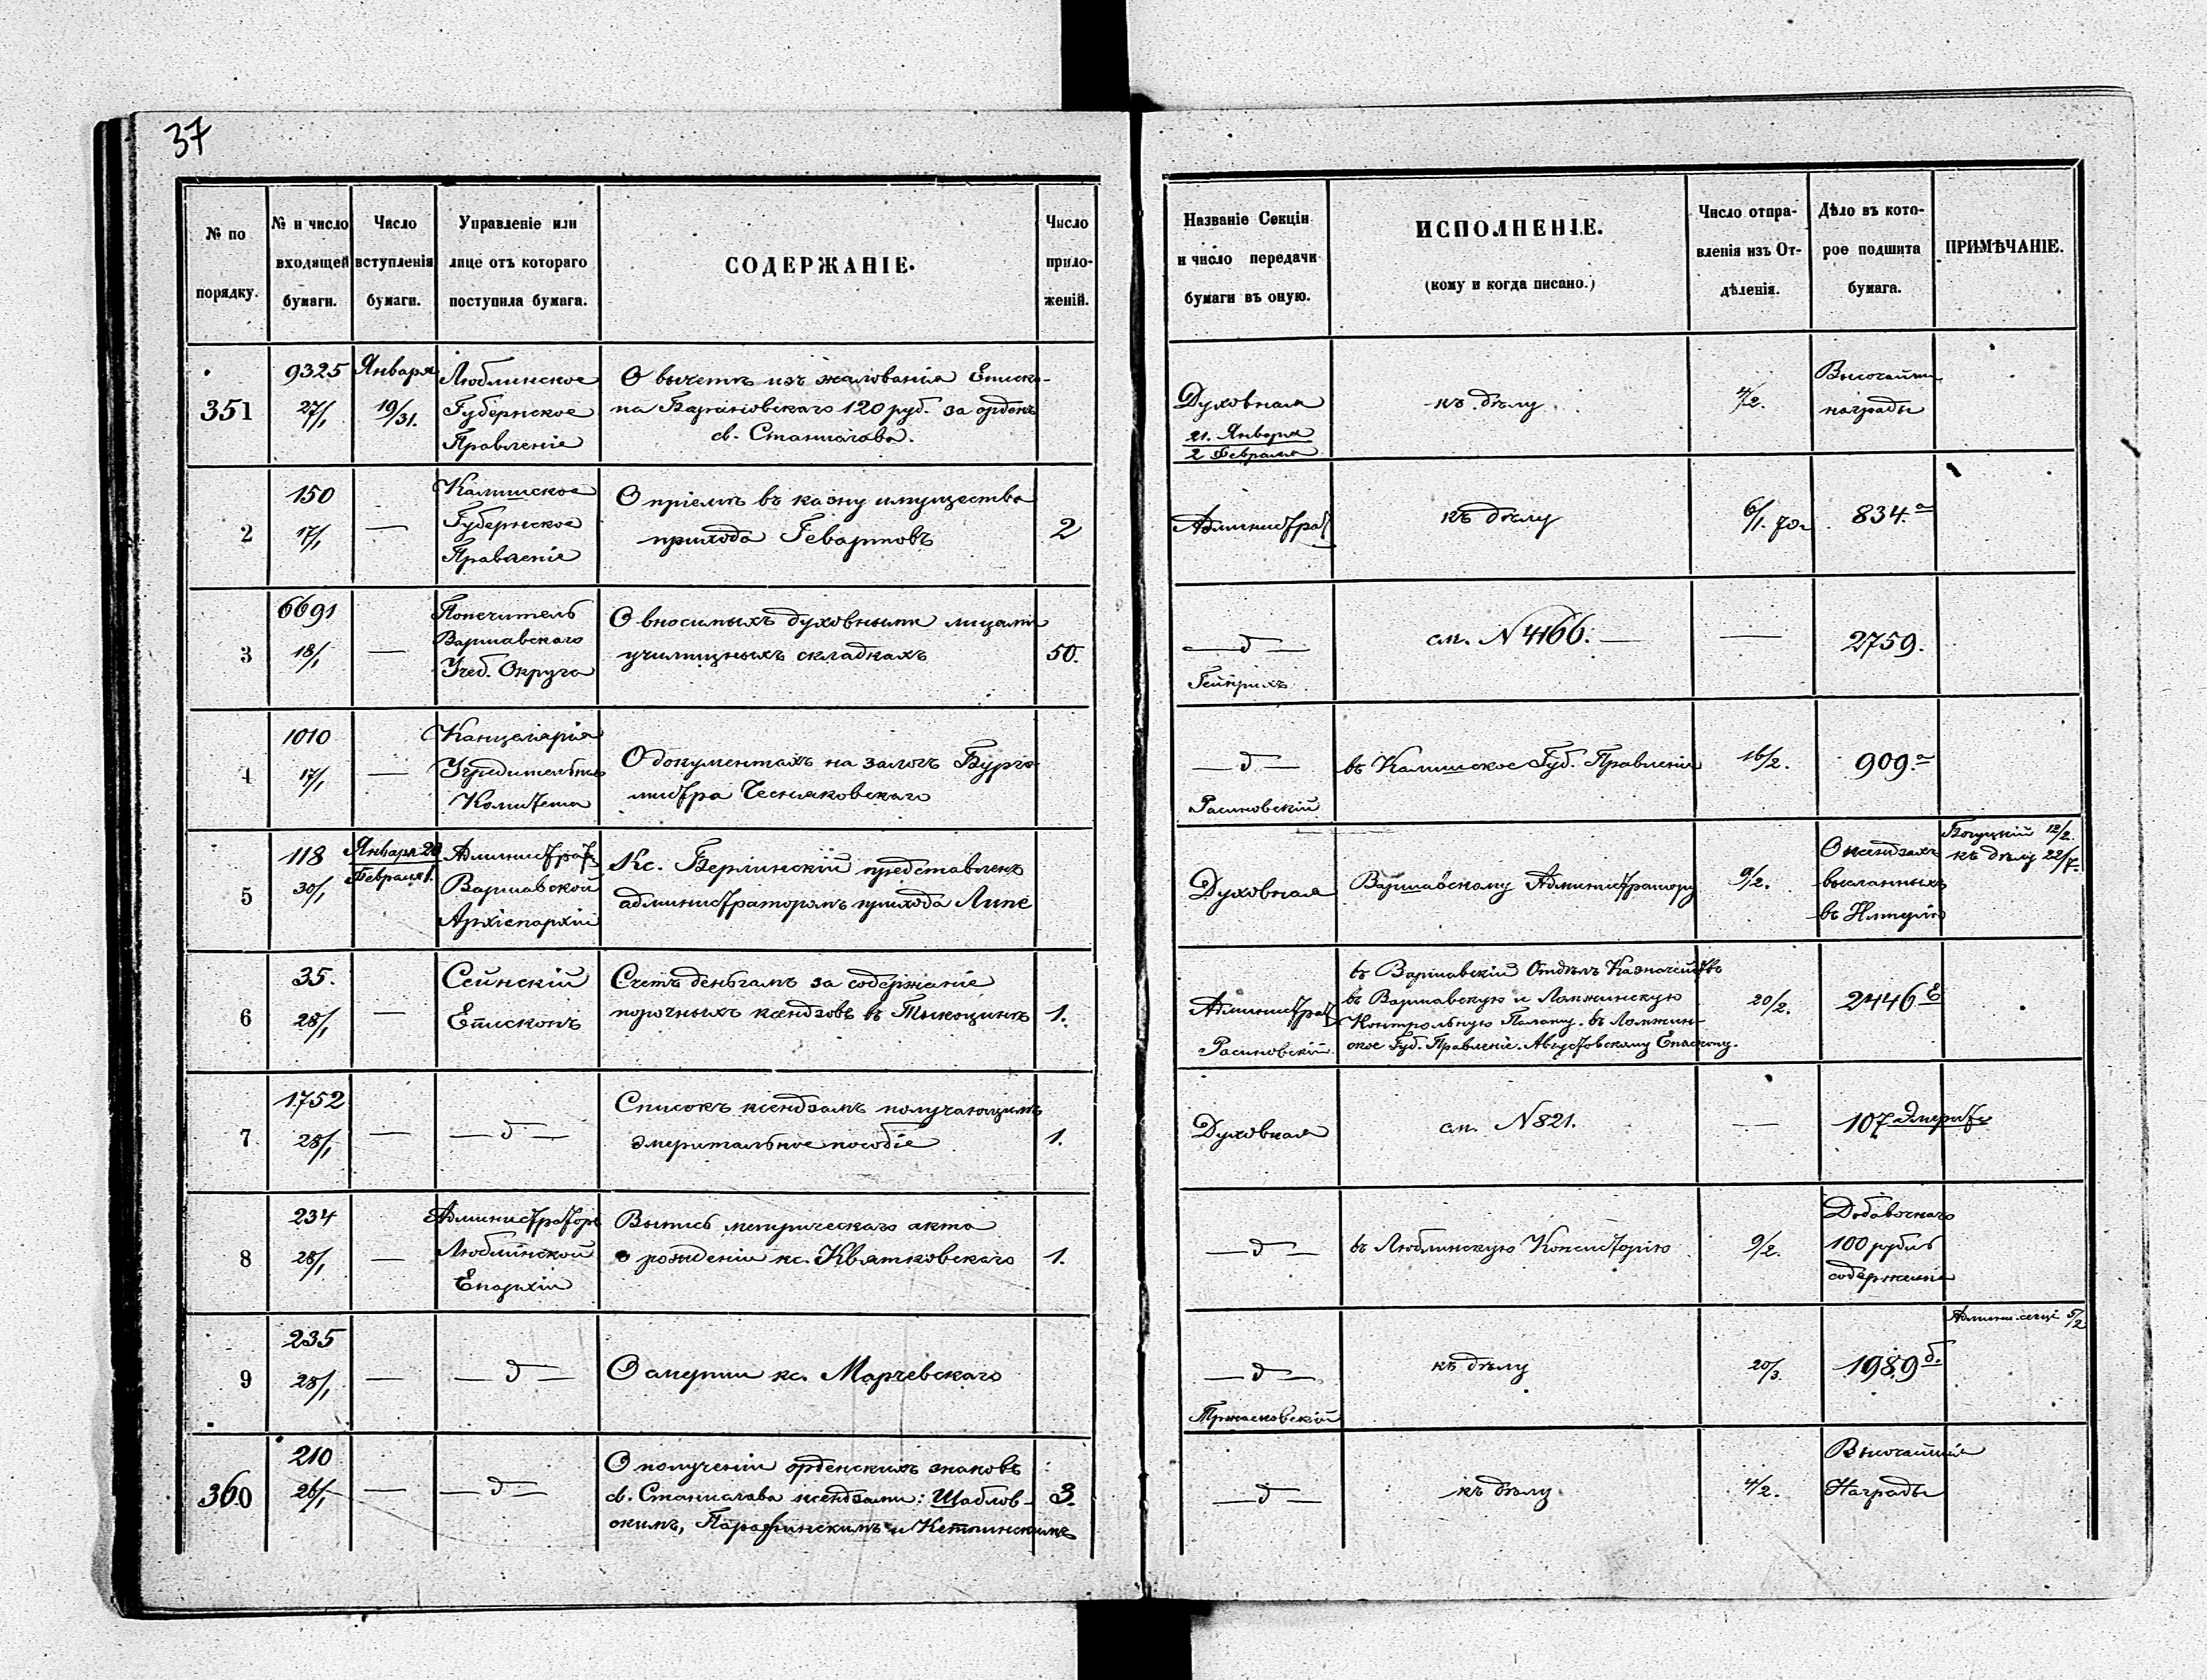 37
№ по порядку.
№ и число входящей бумаги.
Число вступленія бумаги.
Управленіе или лице отъ котораго поступила бумага.
СОДЕРЖАНІЕ.
Число прило-женій.
Названіе Секціи и число передачи бумаги въ оную.
ИСПОЛНЕНІЕ.
(кому и когда писано.)
Число отпра-вленія изъ От-дѣленія.
Дѣло въ кото-рое подшита бумага.
ПРИМѢЧАНІЕ.
351
9325
27/1
Января
19/31.
Люблинское
Губернское
Правленіе
О вычетѣ изъ жалованія Еписко-
па Барановскаго 120 руб. за орденъ
св. Станислава.
Духовная
21. Января
2 Февраля
къ дѣлу
4/2.
Высочайшія
награды
2
150
17/1
—
Калишское
Губернское
Правленіе
О пріемѣ въ казну имущества
прихода Гевартовъ
2
Администрат
къ дѣлу
6/1. 70г
834.а
3
6691
18/1
—
Попечитель
Варшавскаго
Учеб. Округа
О вносимыхъ духовными лицами
училищныхъ складкахъ
50.
— д —
Гейнрихъ
см. N 4166. —
—
2759.
4
1010
17/1
—
Канцелярія
Учредительнаго
Комитета
О документахъ на залогъ Бурго-
мистра Чесняковскаго
— д —
Расиновскій
въ Калишское Губ. Правленіе
16/2.
909.а
5
118
30/1
Января 20
Февраля 1.
Администрат
Варшавской
Архіепархіи
Кс. Берлинскій представленъ
администраторомъ прихода Липе
Духовная
Варшавскому Администратору
9/2.
О ксендзахъ
высланныхъ
въ Имперію
Богуцкій 12/2.
къ дѣлу 22/7.
6
35.
28/1
—
Сейнскій
Епископъ
Счетъ деньгамъ за содержаніе
порочныхъ ксендзовъ въ Тыкоцинѣ
1.
Администрат
Расиновскій
въ Варшавскій Отдѣлъ Казначейства
въ Варшавскую и Ломжинскую
Контрольную Палату. въ Ломжин-
ское Губ. Правленіе. Августовскому Епископу.
20/2.
2446 Е
7
1752
28/1
—
— д —
Списокъ ксендзамъ получающимъ
эмеритальное пособіе
1.
Духовная
см. N 821.
—
107 Эмерит
8
234
28/1
—
Администраторъ
Люблинской
Епархіи
Выпись метрическаго акта
о рожденіи кс. Квятковскаго
1.
— д —
въ Люблинскую Консисторію
9/2.
Добавочнаго
100 рубль
содержанія
9
235
28/1
—
— д —
О смерти кс. Марчевскаго
— д —
къ дѣлу
20/3
1989 б.
Админ. секці 5/2
360
210
26/1
—
— д —
О полученіи орденскихъ знаковъ
св. Станислава ксендзами: Шаблов-
скимъ, Парафинскимъ и Кетлинскимъ
3.
— д —
къ дѣлу
4/2.
Высочайшія
Награды